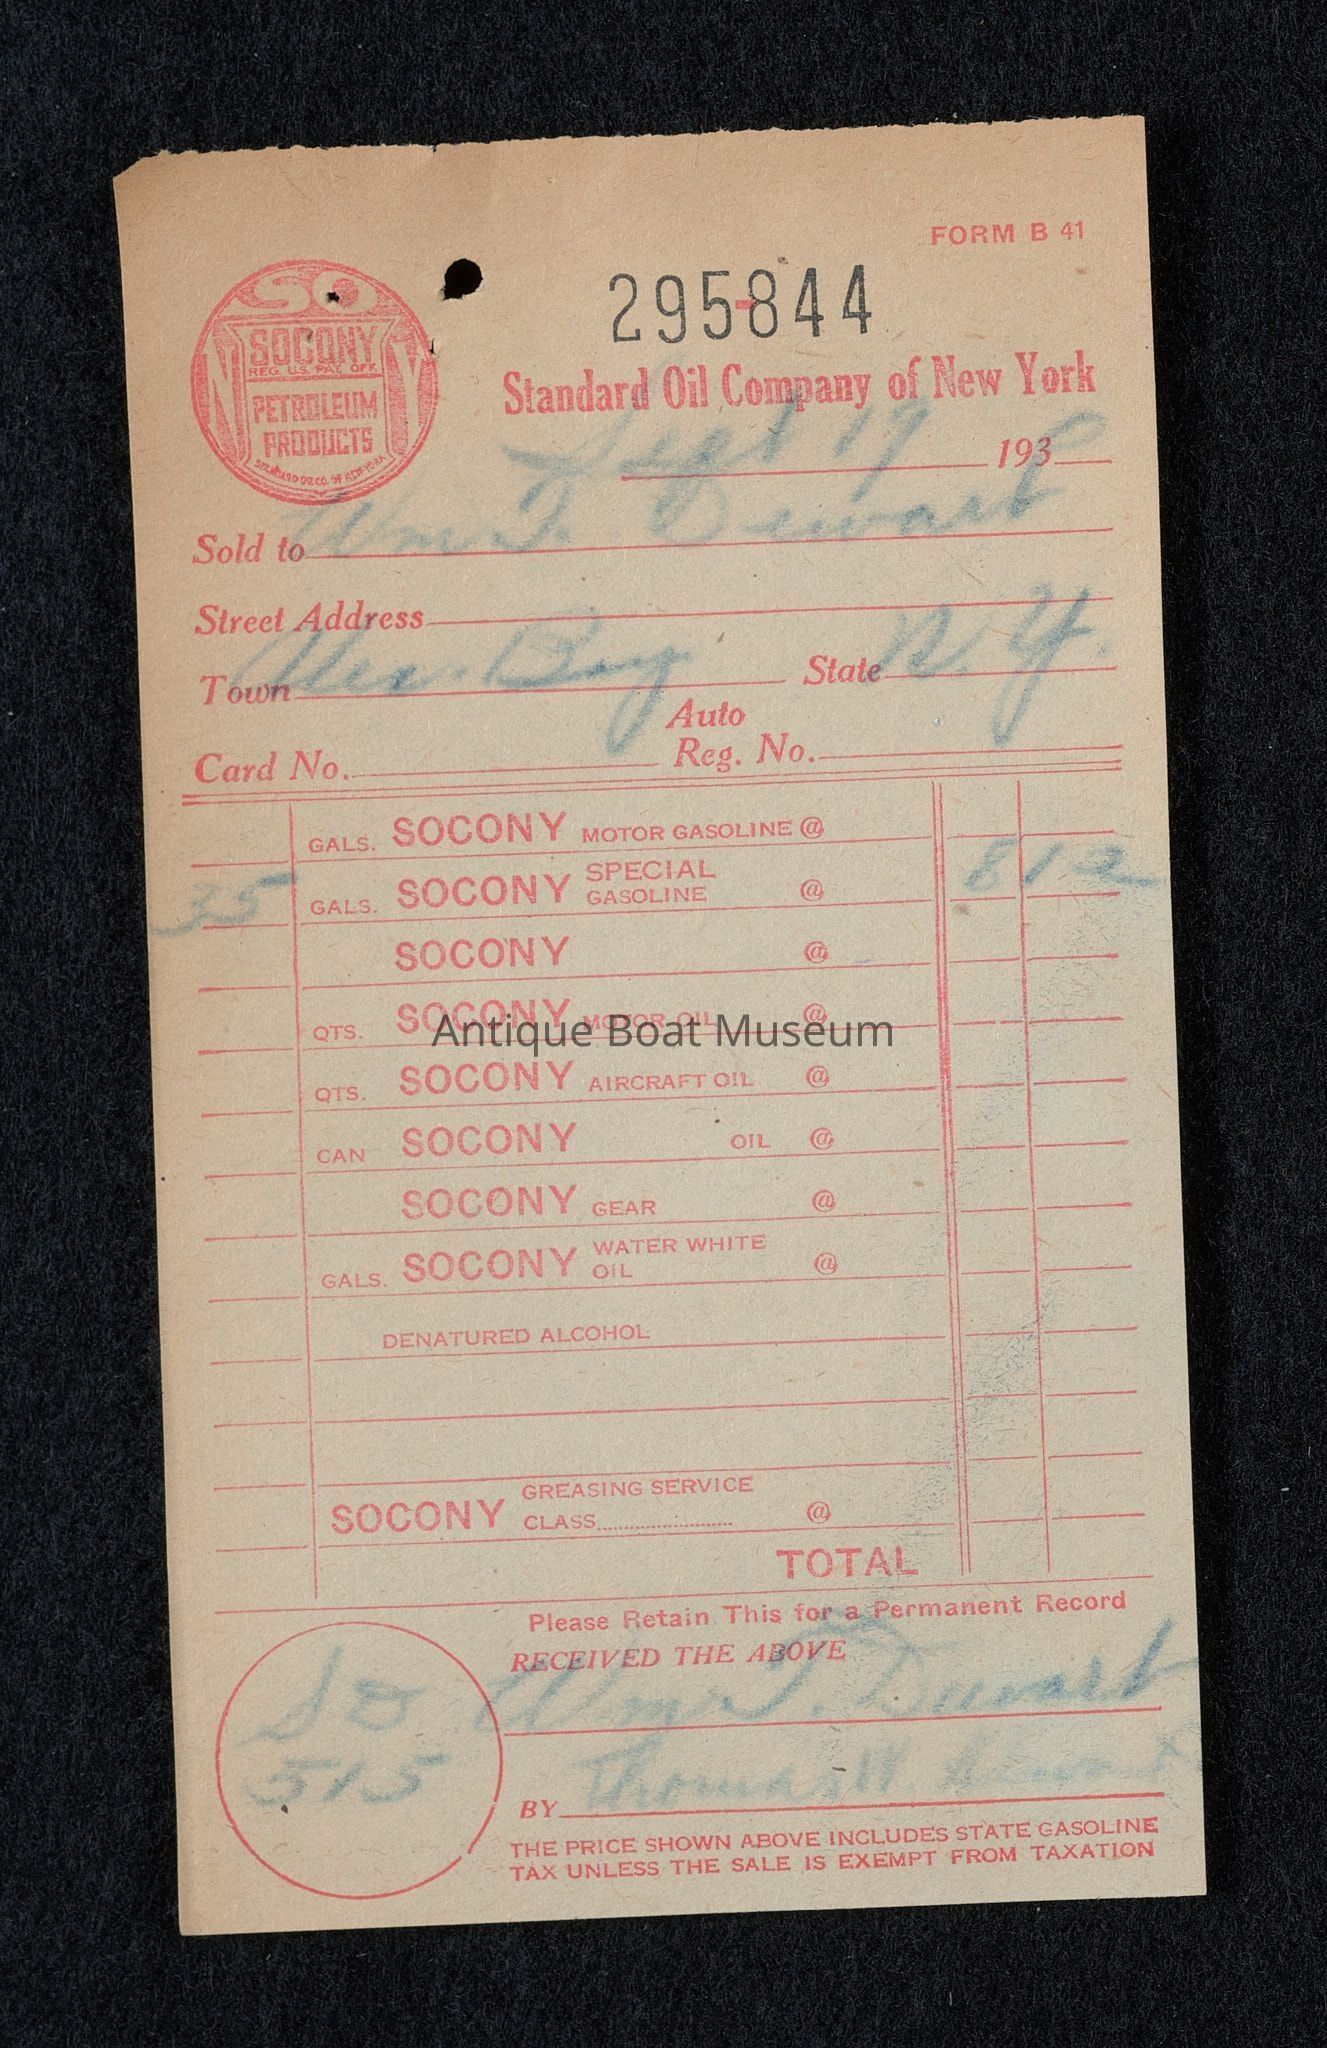 FORM B 41
295844
SO
SOCONY
REG. U.S. PAT. OFF.
PETROLEUM
PRODUCTS
STANDARD OIL CO. OF NEW YORK
Standard Oil Company of New York
Sept 19 193
Sold to Wm T. Dewart
Street Address
Town Alex. Bay State N.Y.
Card No. Auto Reg. No.
GALS. SOCONY MOTOR GASOLINE @
35 GALS. SOCONY SPECIAL GASOLINE @ 8 12
SOCONY @
QTS. SOCONY MOTOR OIL @
Antique Boat Museum
QTS. SOCONY AIRCRAFT OIL @
CAN SOCONY OIL @
SOCONY GEAR @
GALS. SOCONY WATER WHITE OIL @
DENATURED ALCOHOL
SOCONY GREASING SERVICE
CLASS @
TOTAL
Please Retain This for a Permanent Record
RECEIVED THE ABOVE
Wm T. Dewart
515
BY Thomas W. Dewart
THE PRICE SHOWN ABOVE INCLUDES STATE GASOLINE
TAX UNLESS THE SALE IS EXEMPT FROM TAXATION